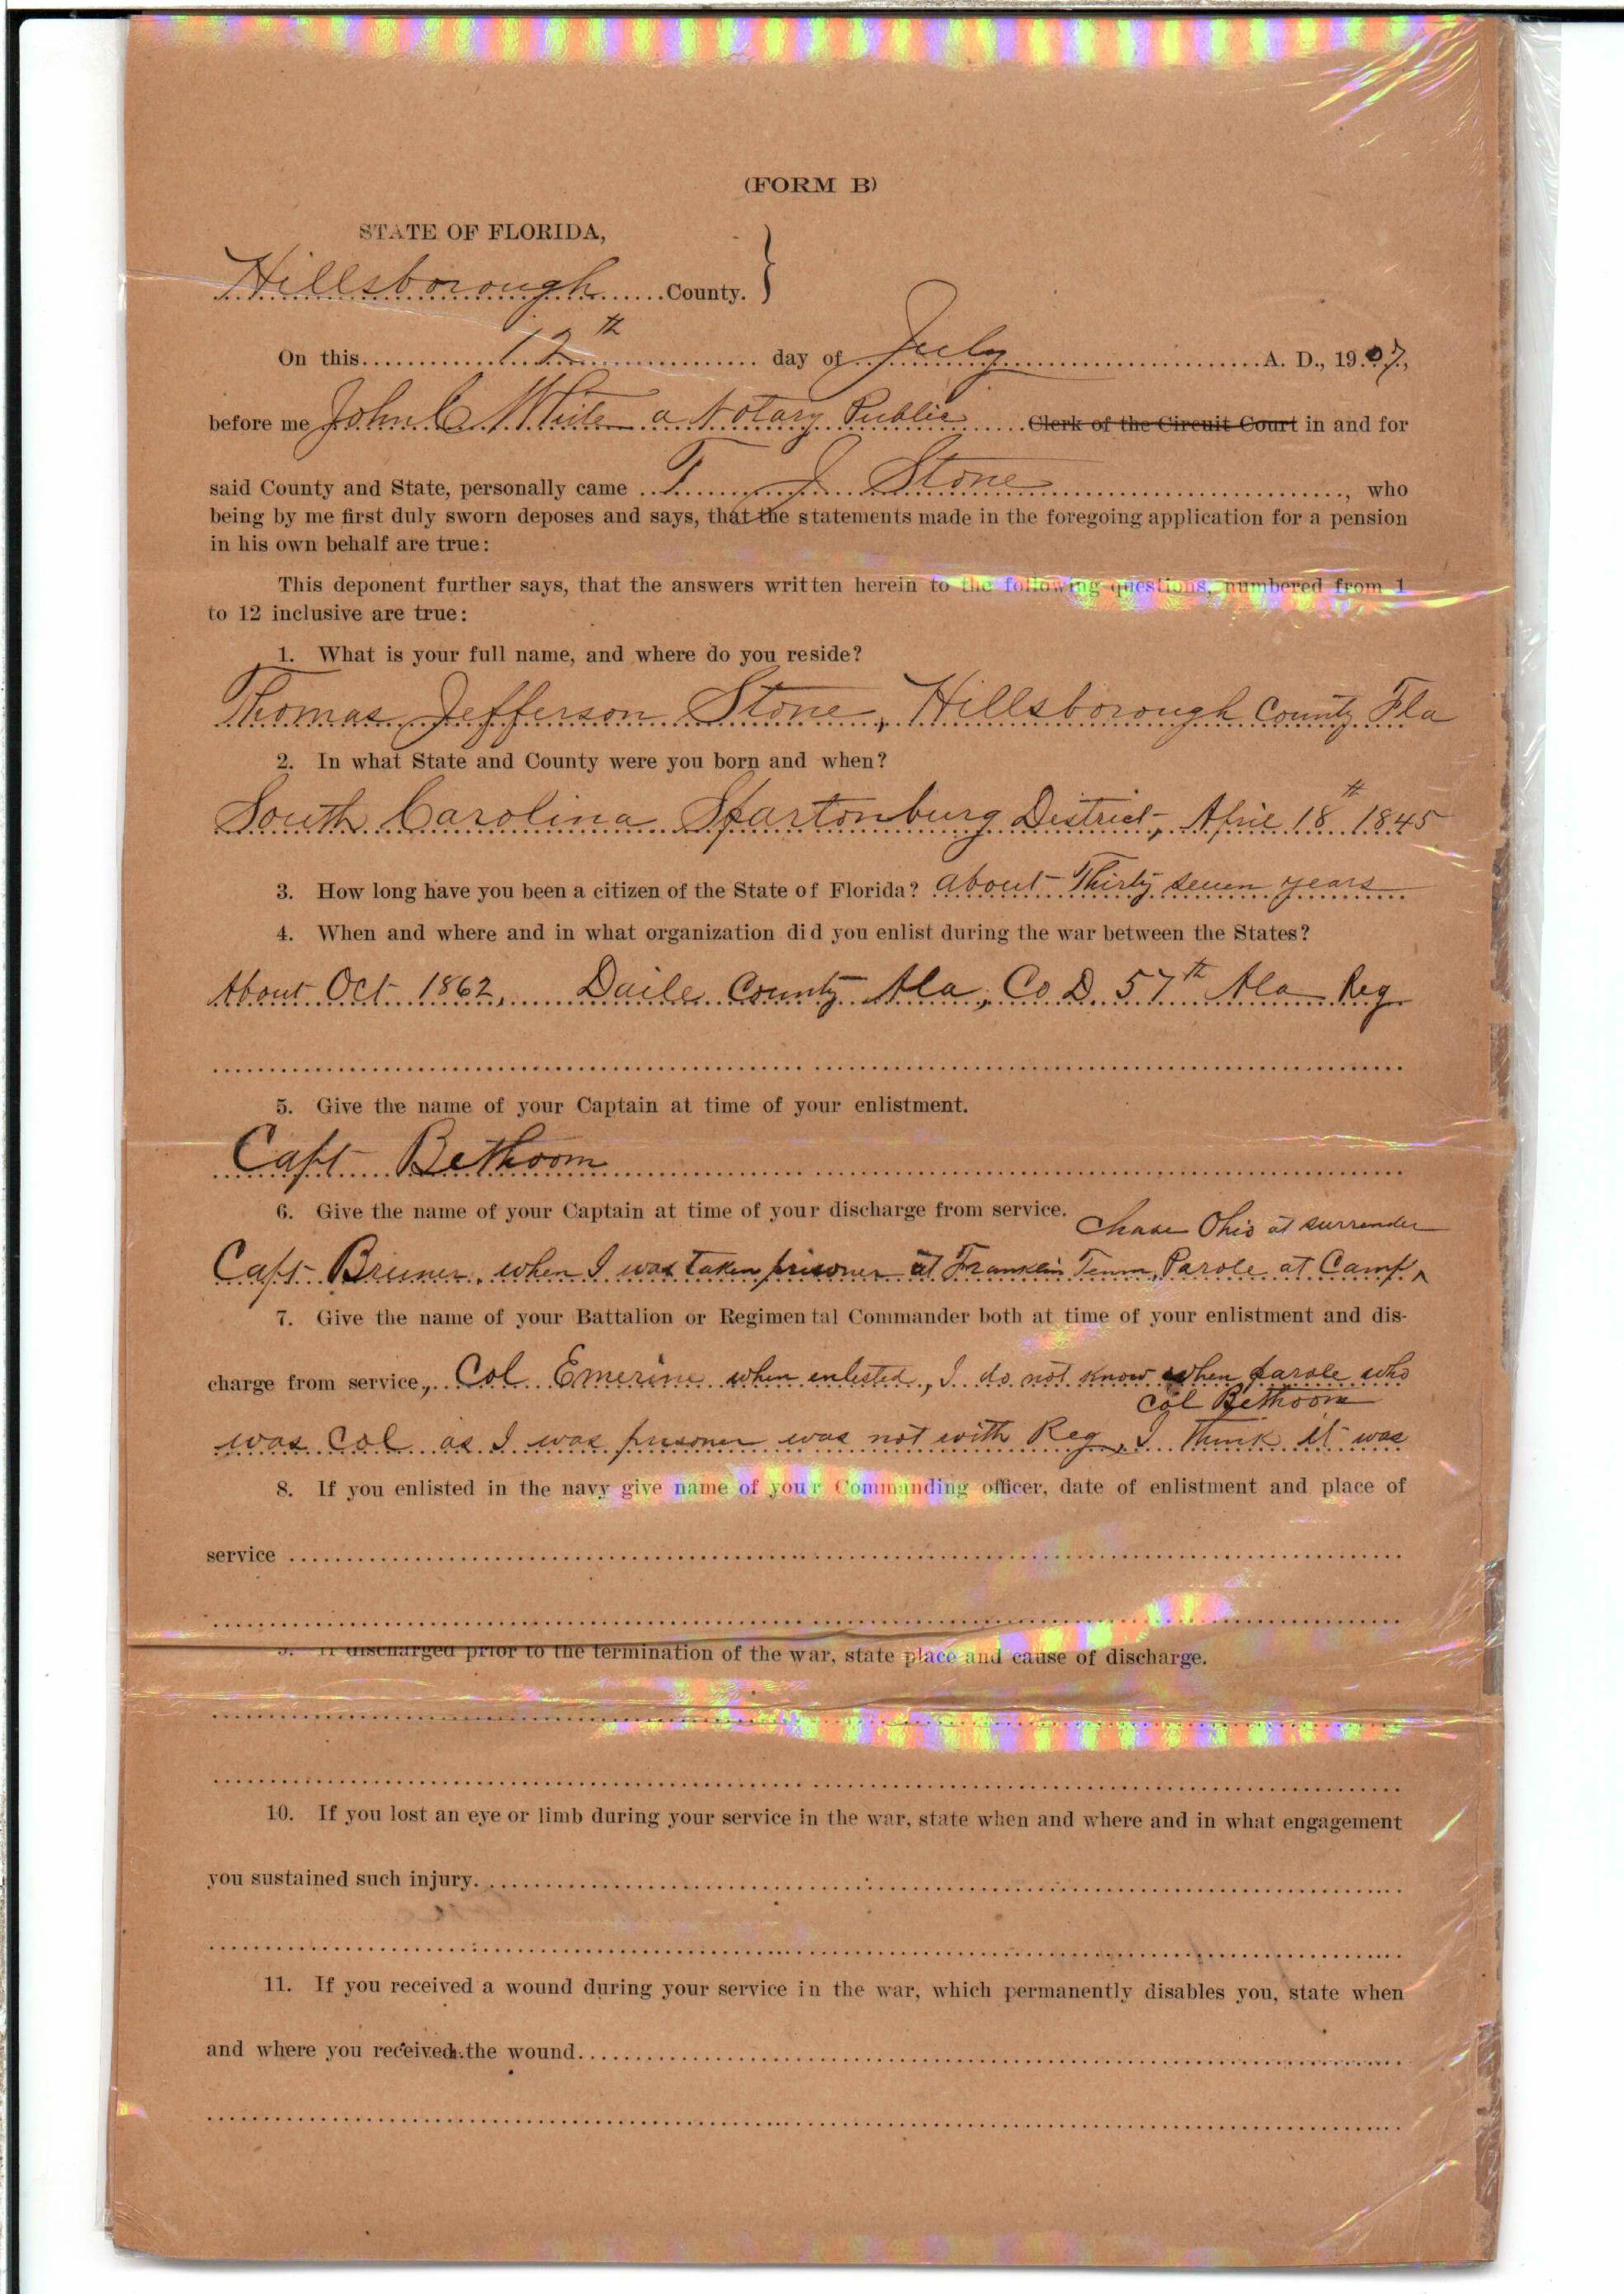 (FORM B)
STATE OF FLORIDA,
Hillsborough County.
On this 12th day of July A. D., 1907,
before me John C White a Notary Public Clerk of the Circuit Court in and for
said County and State, personally came T J Stone, who
being by me first duly sworn deposes and says, that the statements made in the foregoing application for a pension
in his own behalf are true:
This deponent further says, that the answers written herein to the following questions, numbered from 1
to 12 inclusive are true:
1. What is your full name, and where do you reside?
Thomas Jefferson Stone, Hillsborough County Fla
2. In what State and County were you born and when?
South Carolina Spartonburg District, April 18th 1845
3. How long have you been a citizen of the State of Florida? about Thirty seven years
4. When and where and in what organization did you enlist during the war between the States?
About Oct 1862, County Ala, Co D 57th Ala Reg
5. Give the name of your Captain at time of your enlistment.
Capt Bethoom
6. Give the name of your Captain at time of your discharge from service.
Chase Ohio at surrender
Capt Bruner, when I was taken prisoner at Franklin Tenn, Parole at Camp ^
7. Give the name of your Battalion or Regimental Commander both at time of your enlistment and dis-
charge from service, Col when enlested, I do not know when parole who
Col Bethoom
was Col as I was prisoner was not with Reg, I think it was
8. If you enlisted in the navy give name of your Commanding officer, date of enlistment and place of
service
9. If discharged prior to the termination of the war, state place and cause of discharge.
10. If you lost an eye or limb during your service in the war, state when and where and in what engagement
you sustained such injury.
11. If you received a wound during your service in the war, which permanently disables you, state when
and where you received the wound.